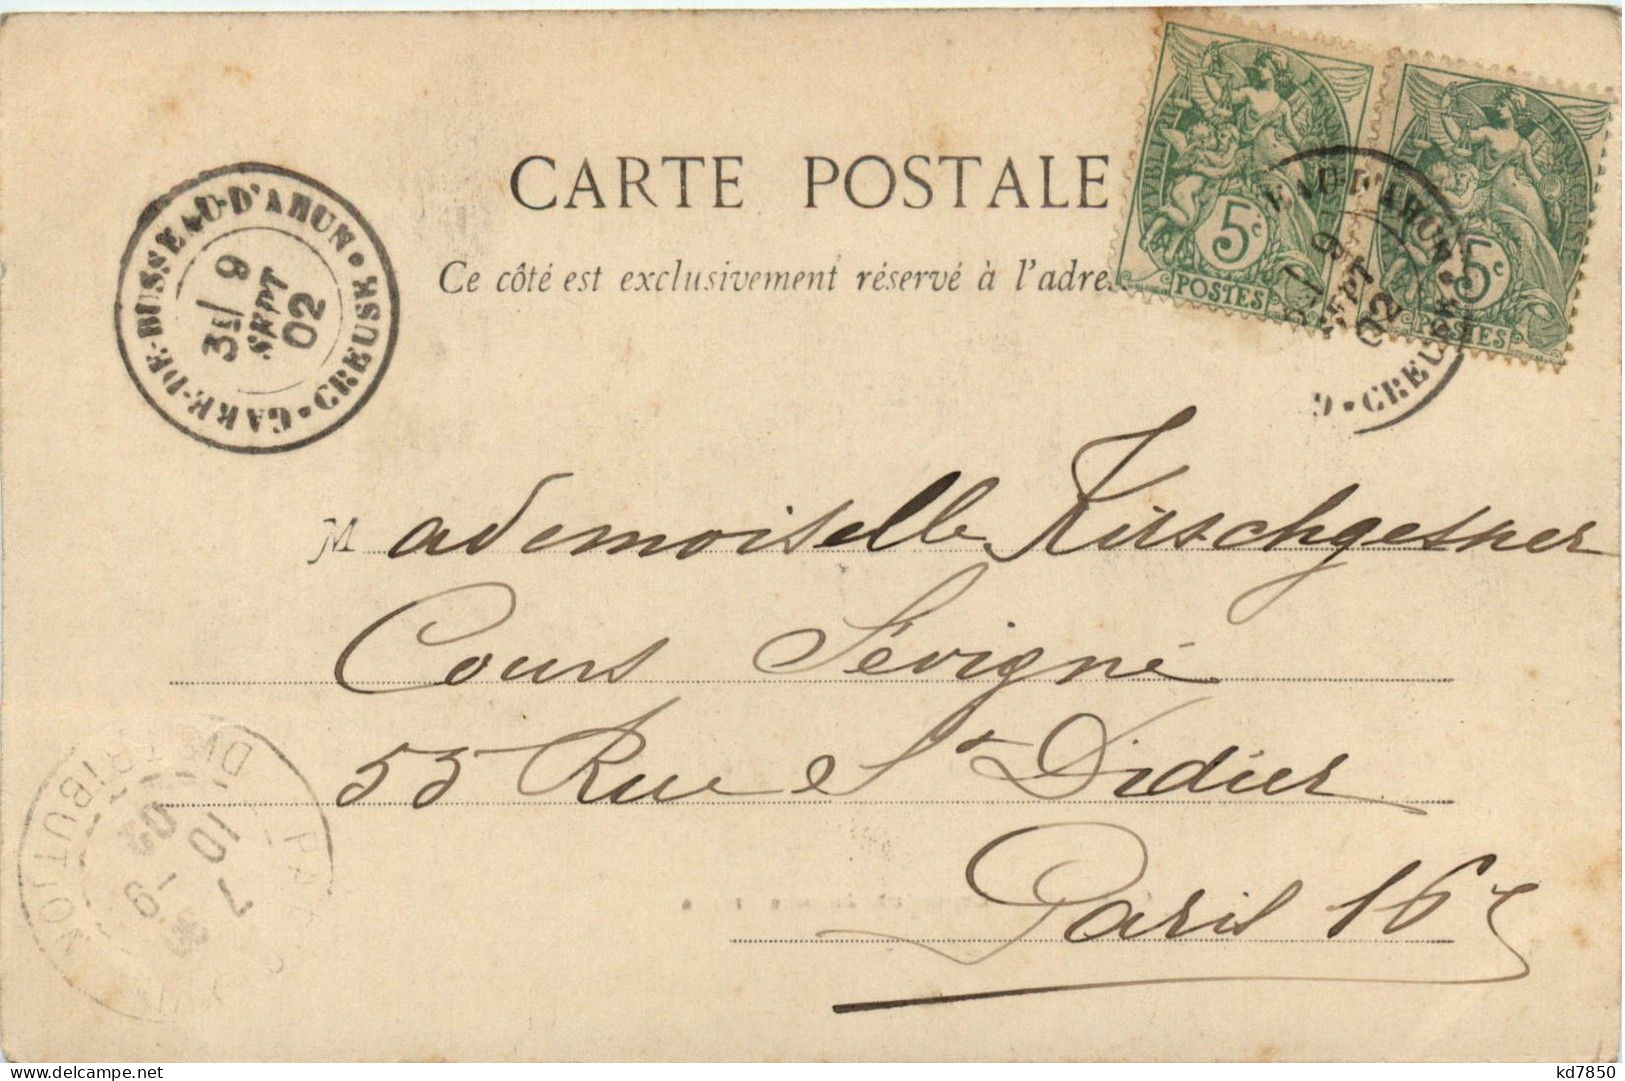 CARTE POSTALE
Ce côté est exclusivement réservé à l'adre
GARE-DE-BUSSEAU-D'AHUN • CREUSE
3E/ 9
SEPT
02
RÉPUBLIQUE FRANÇAISE
5c
POSTES
FRANÇAISE
5c
POSTES
EAU-D'AHUN • CREUSE
9
SEPT
02
Mademoiselle Kirschgesner
Cours Sévigné
55 Rue St Didier
Paris 16e
PARIS
DISTRIBUTION
7
10 - 9
02
kd7850